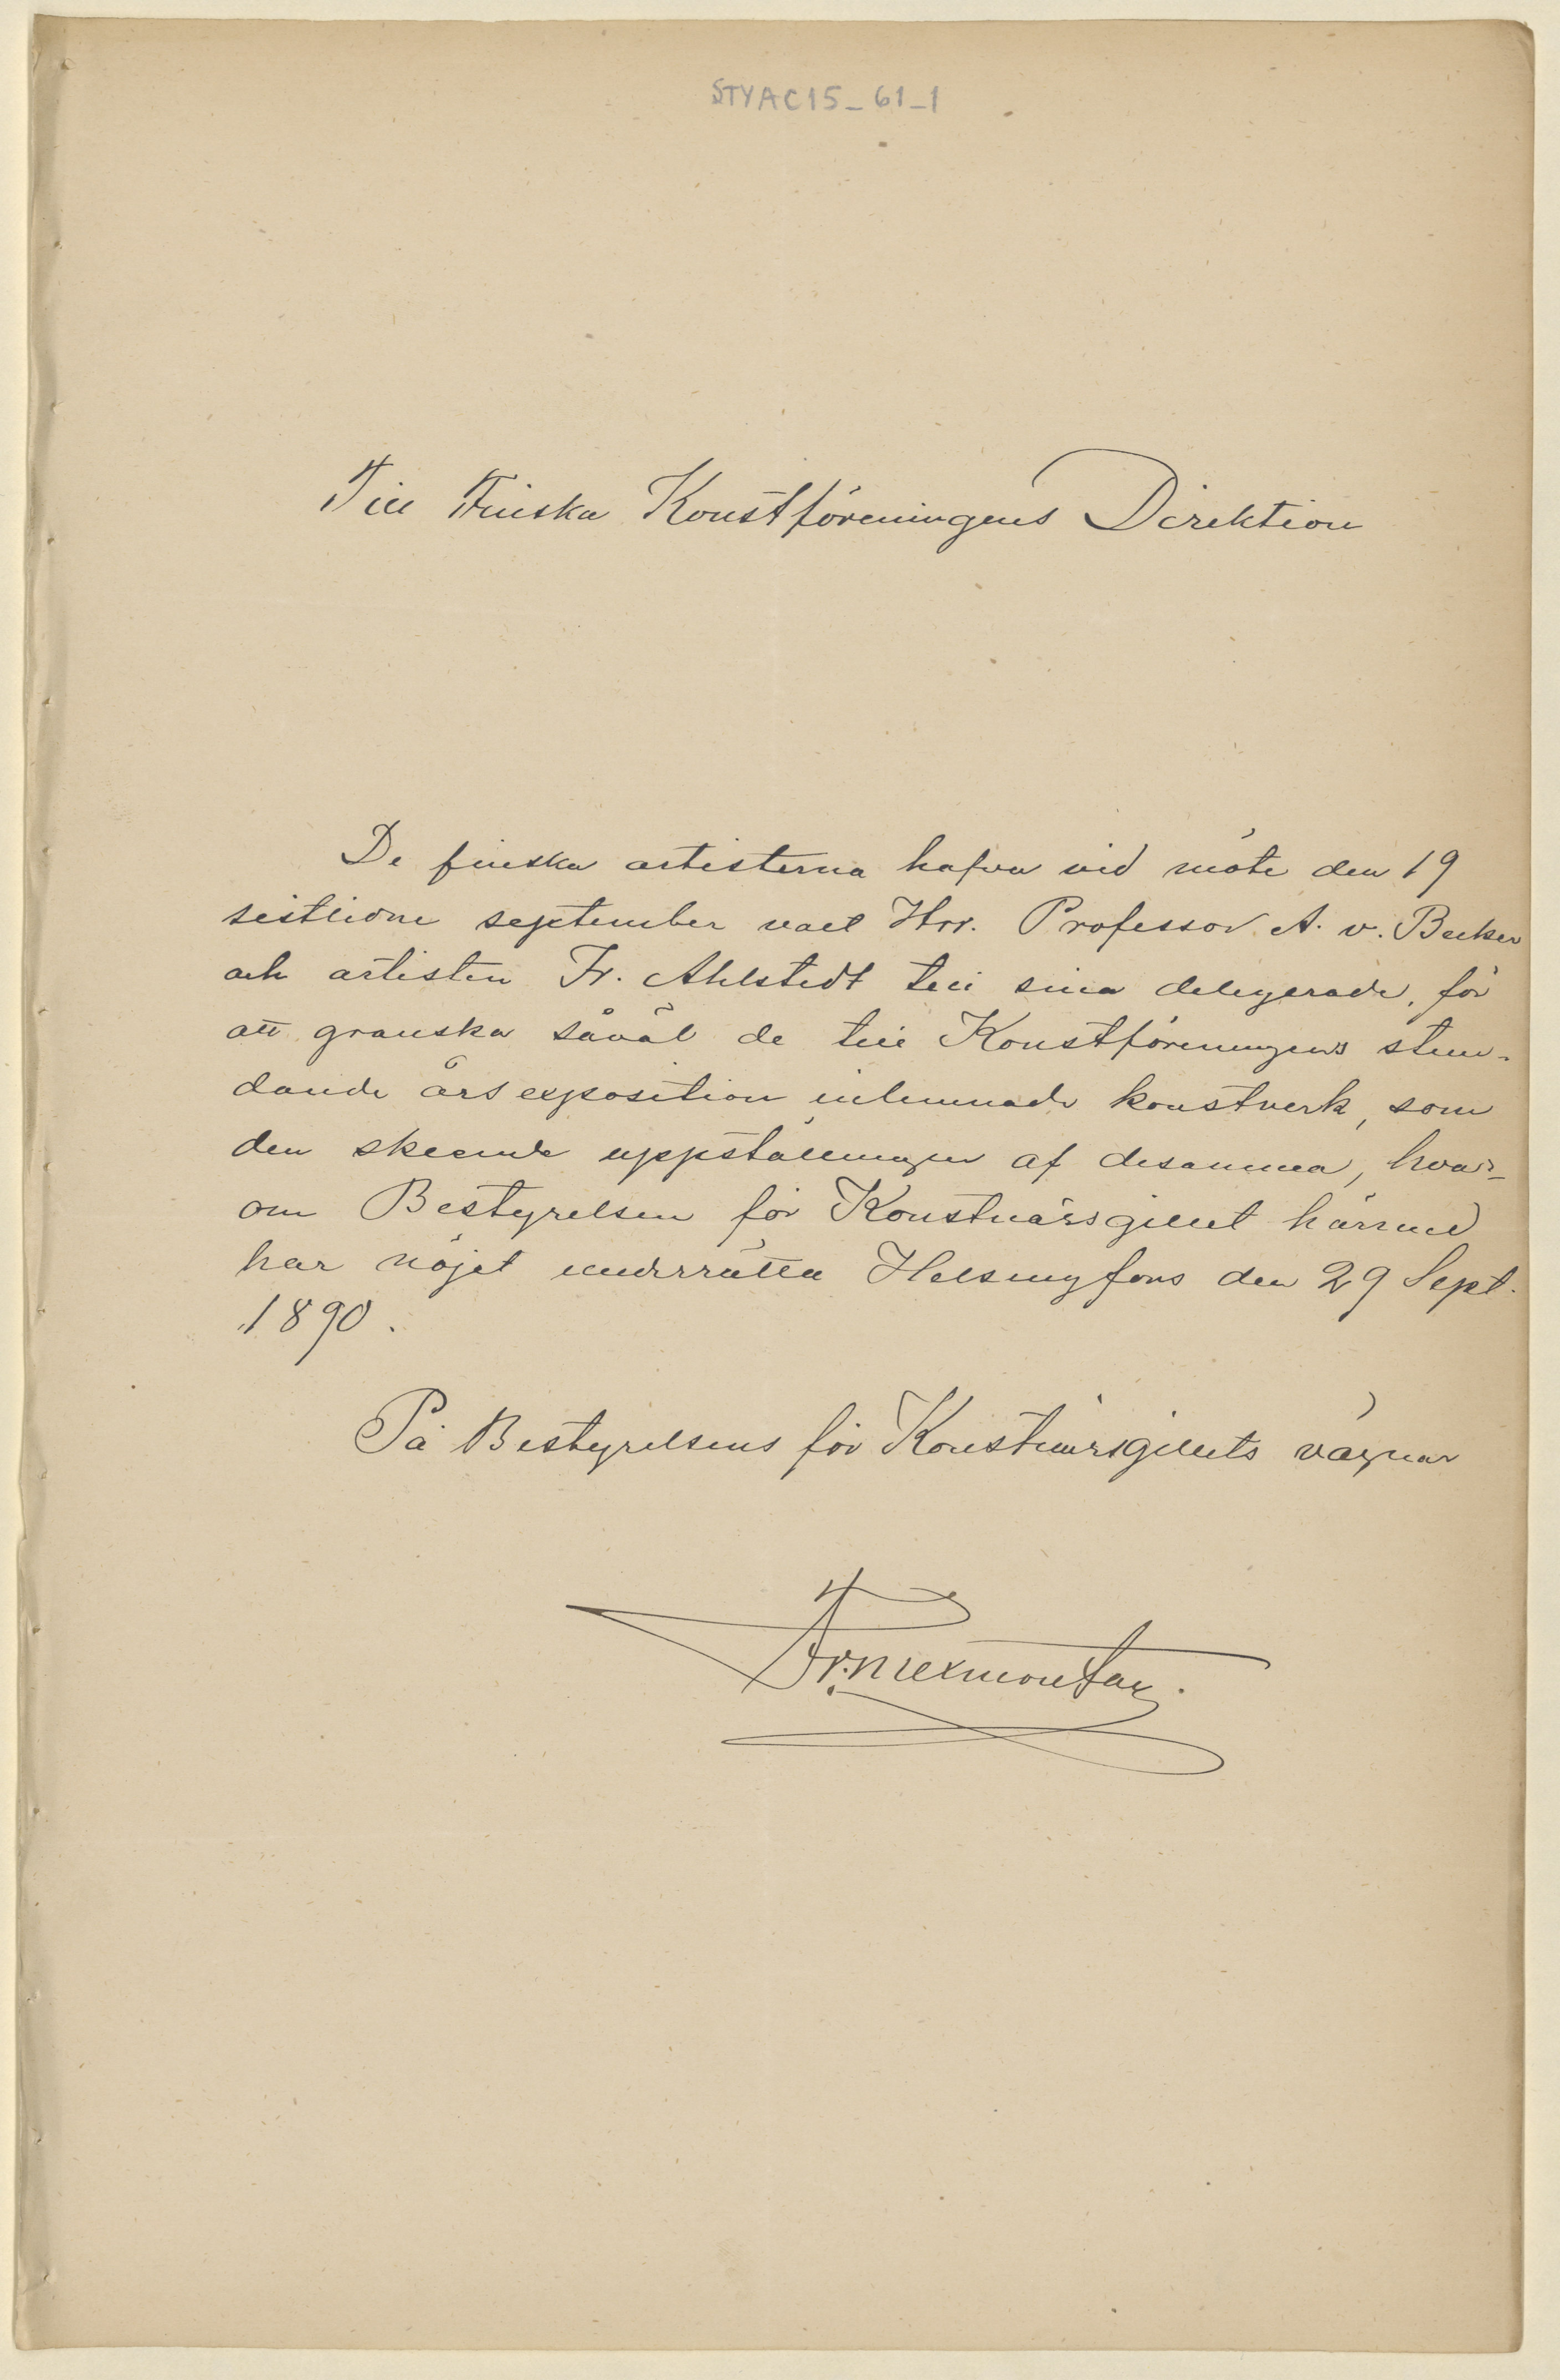 STYAC15_61_1
Till Finska Konstföreningens Direktion
De finska artisterna hafva vid möte den 19
sistlidne september valt Hrr. Professor A. v. Becker
och artisten Fr. Ahlstedt till sina delegerade, för
att granska såväl de till Konstföreningens stun-
dande årsexposition inlemnade konstverk, som
den skeende uppställningen af desamma, hvar-
om Bestyrelsen för Konstnärsgillet härmed
har nöjet underrätta Helsingfors den 29 Sept.
1890.
På Bestyrelsens för Konstnärsgillets vägnar